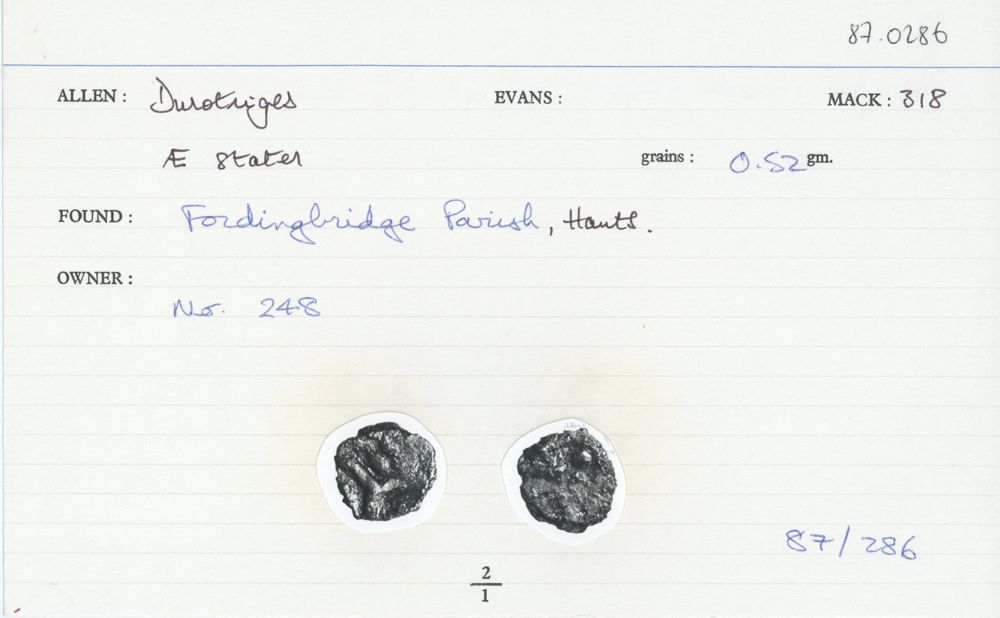 87.0286
ALLEN : Durotriges EVANS : MACK : 318
Æ stater grains : 0.52 gm.
FOUND : Fordingbridge Parish, Hants.
OWNER :
No. 248
87/286
2
1